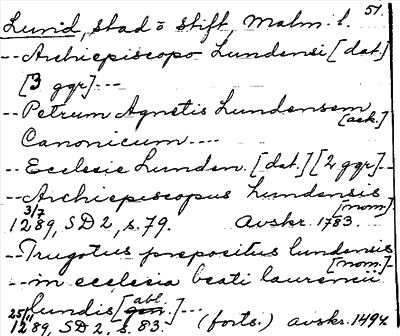 51.
Lund, stad o stift, Malm. l.
-- Archiepiscopo Lundensi [dat.]
[3 ggr] ---
-- Petrum Agnetis Lundensem [ack.]
Canonicum ----
-- Ecclesie Lunden. [dat.] [2 ggr] --
-- Archiepiscopus Lundensis [nom.]
3/7 1289, SD 2, s. 79. Avskr. 1783.
-- Trugotus prepositus lundensis [nom.] --
-- in ecclesia beati laurencii
lundis [gen. abl.] --
25/11 1289, SD 2, s. 83. (forts.) avskr. 1494